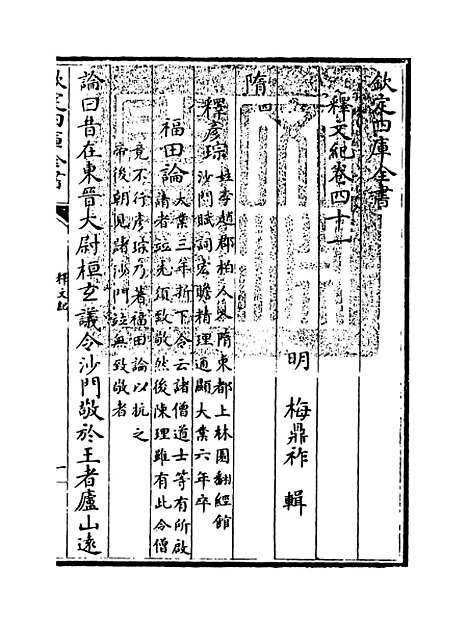 欽定四庫全書
釋文紀卷四十一
明 梅鼎祚 輯
隋四
釋彥琮 姓李趙郡柏人人隋東都上林園翻經館
沙門賦詞宏贍精理通顯大業六年卒
福田論 大業三年新下令云諸僧道士等有所啟
請者竝先須致敬然後陳理雖有此令僧
竟不行彥琮乃著福田論以抗之
帝後朝見諸沙門竝無致敬者
論曰昔在東晉大尉桓玄議令沙門敬於王者廬山遠
欽定四庫全書
釋文紀
一